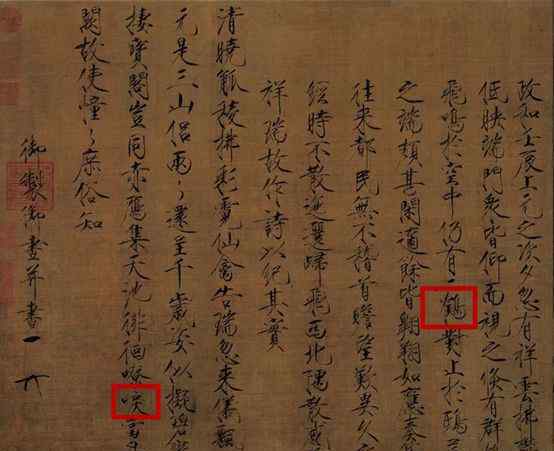 政和壬辰上元之次夕忽有祥雲拂
低映端門衆皆仰而視之倏有群
飛鳴於空中仍有二鶴對止於鴟
之端頗甚閑適餘皆翱翔如應奏
往來都民無不稽首瞻望歎異久
經時不散迤邐歸飛西北隅散感
祥瑞故作詩以紀其實
清曉觚稜拂彩霓仙禽告瑞忽來儀飄
元是三山侶兩〻還呈千歲姿似擬碧
棲寶閣豈同赤雁集天池徘徊嘹唳當
闕故使憧〻庶俗知
御製御畫并書